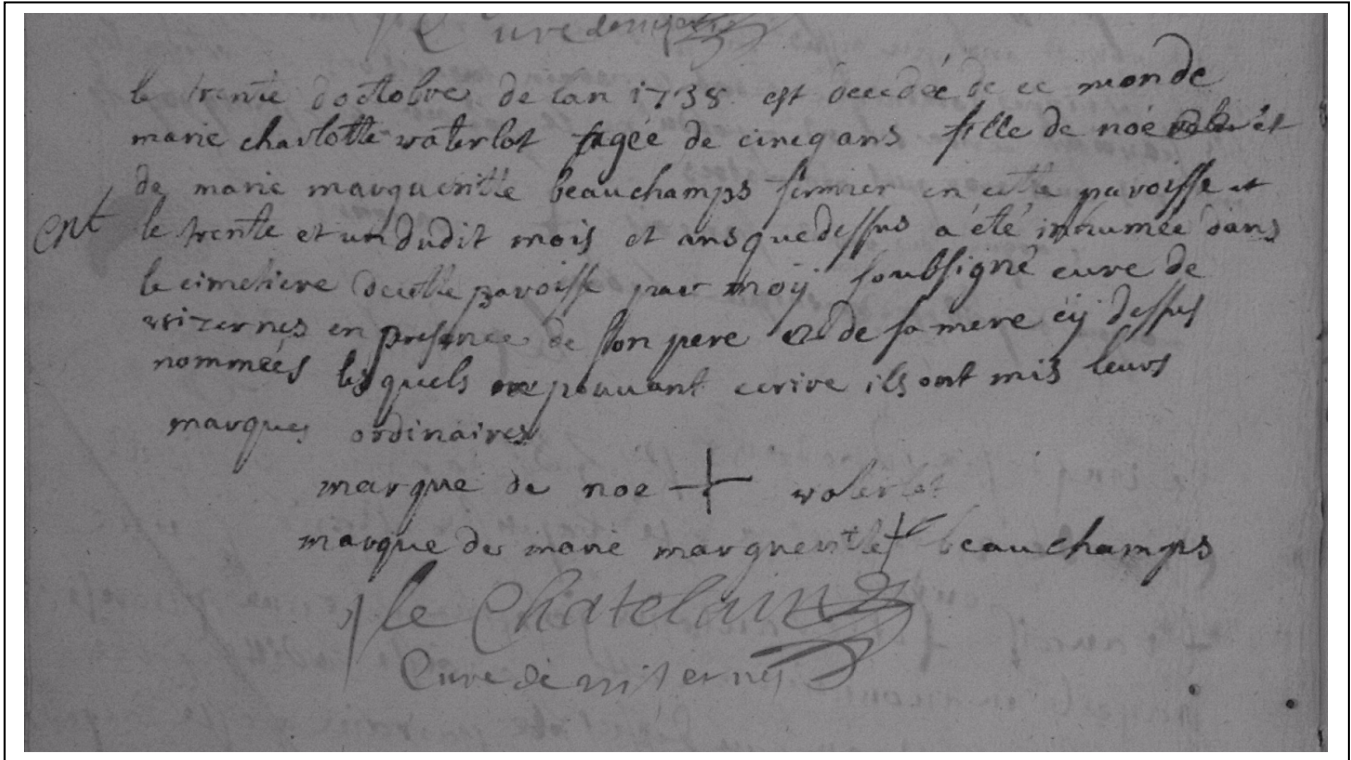 Cure de
le trente doctobre de lan 1738 est decedée de ce monde
marie charlotte waterlot agée de cincq ans fille de noé et
de marie margueritte beauchamps fermier en cette paroisse et
ent le trente et un dudit mois et ans que dessus a été inhumée dans
le cimetiere de cette paroisse par moÿ soubsigné cure de
wizernes en presence de son pere et de sa mere cÿ dessus
nommées lesquels ne pouvant ecrire ils ont mis leurs
marques ordinaires
marque de noe waterlot
marque de marie margueritte beauchamps
le Chatelain
Cure de wisernes